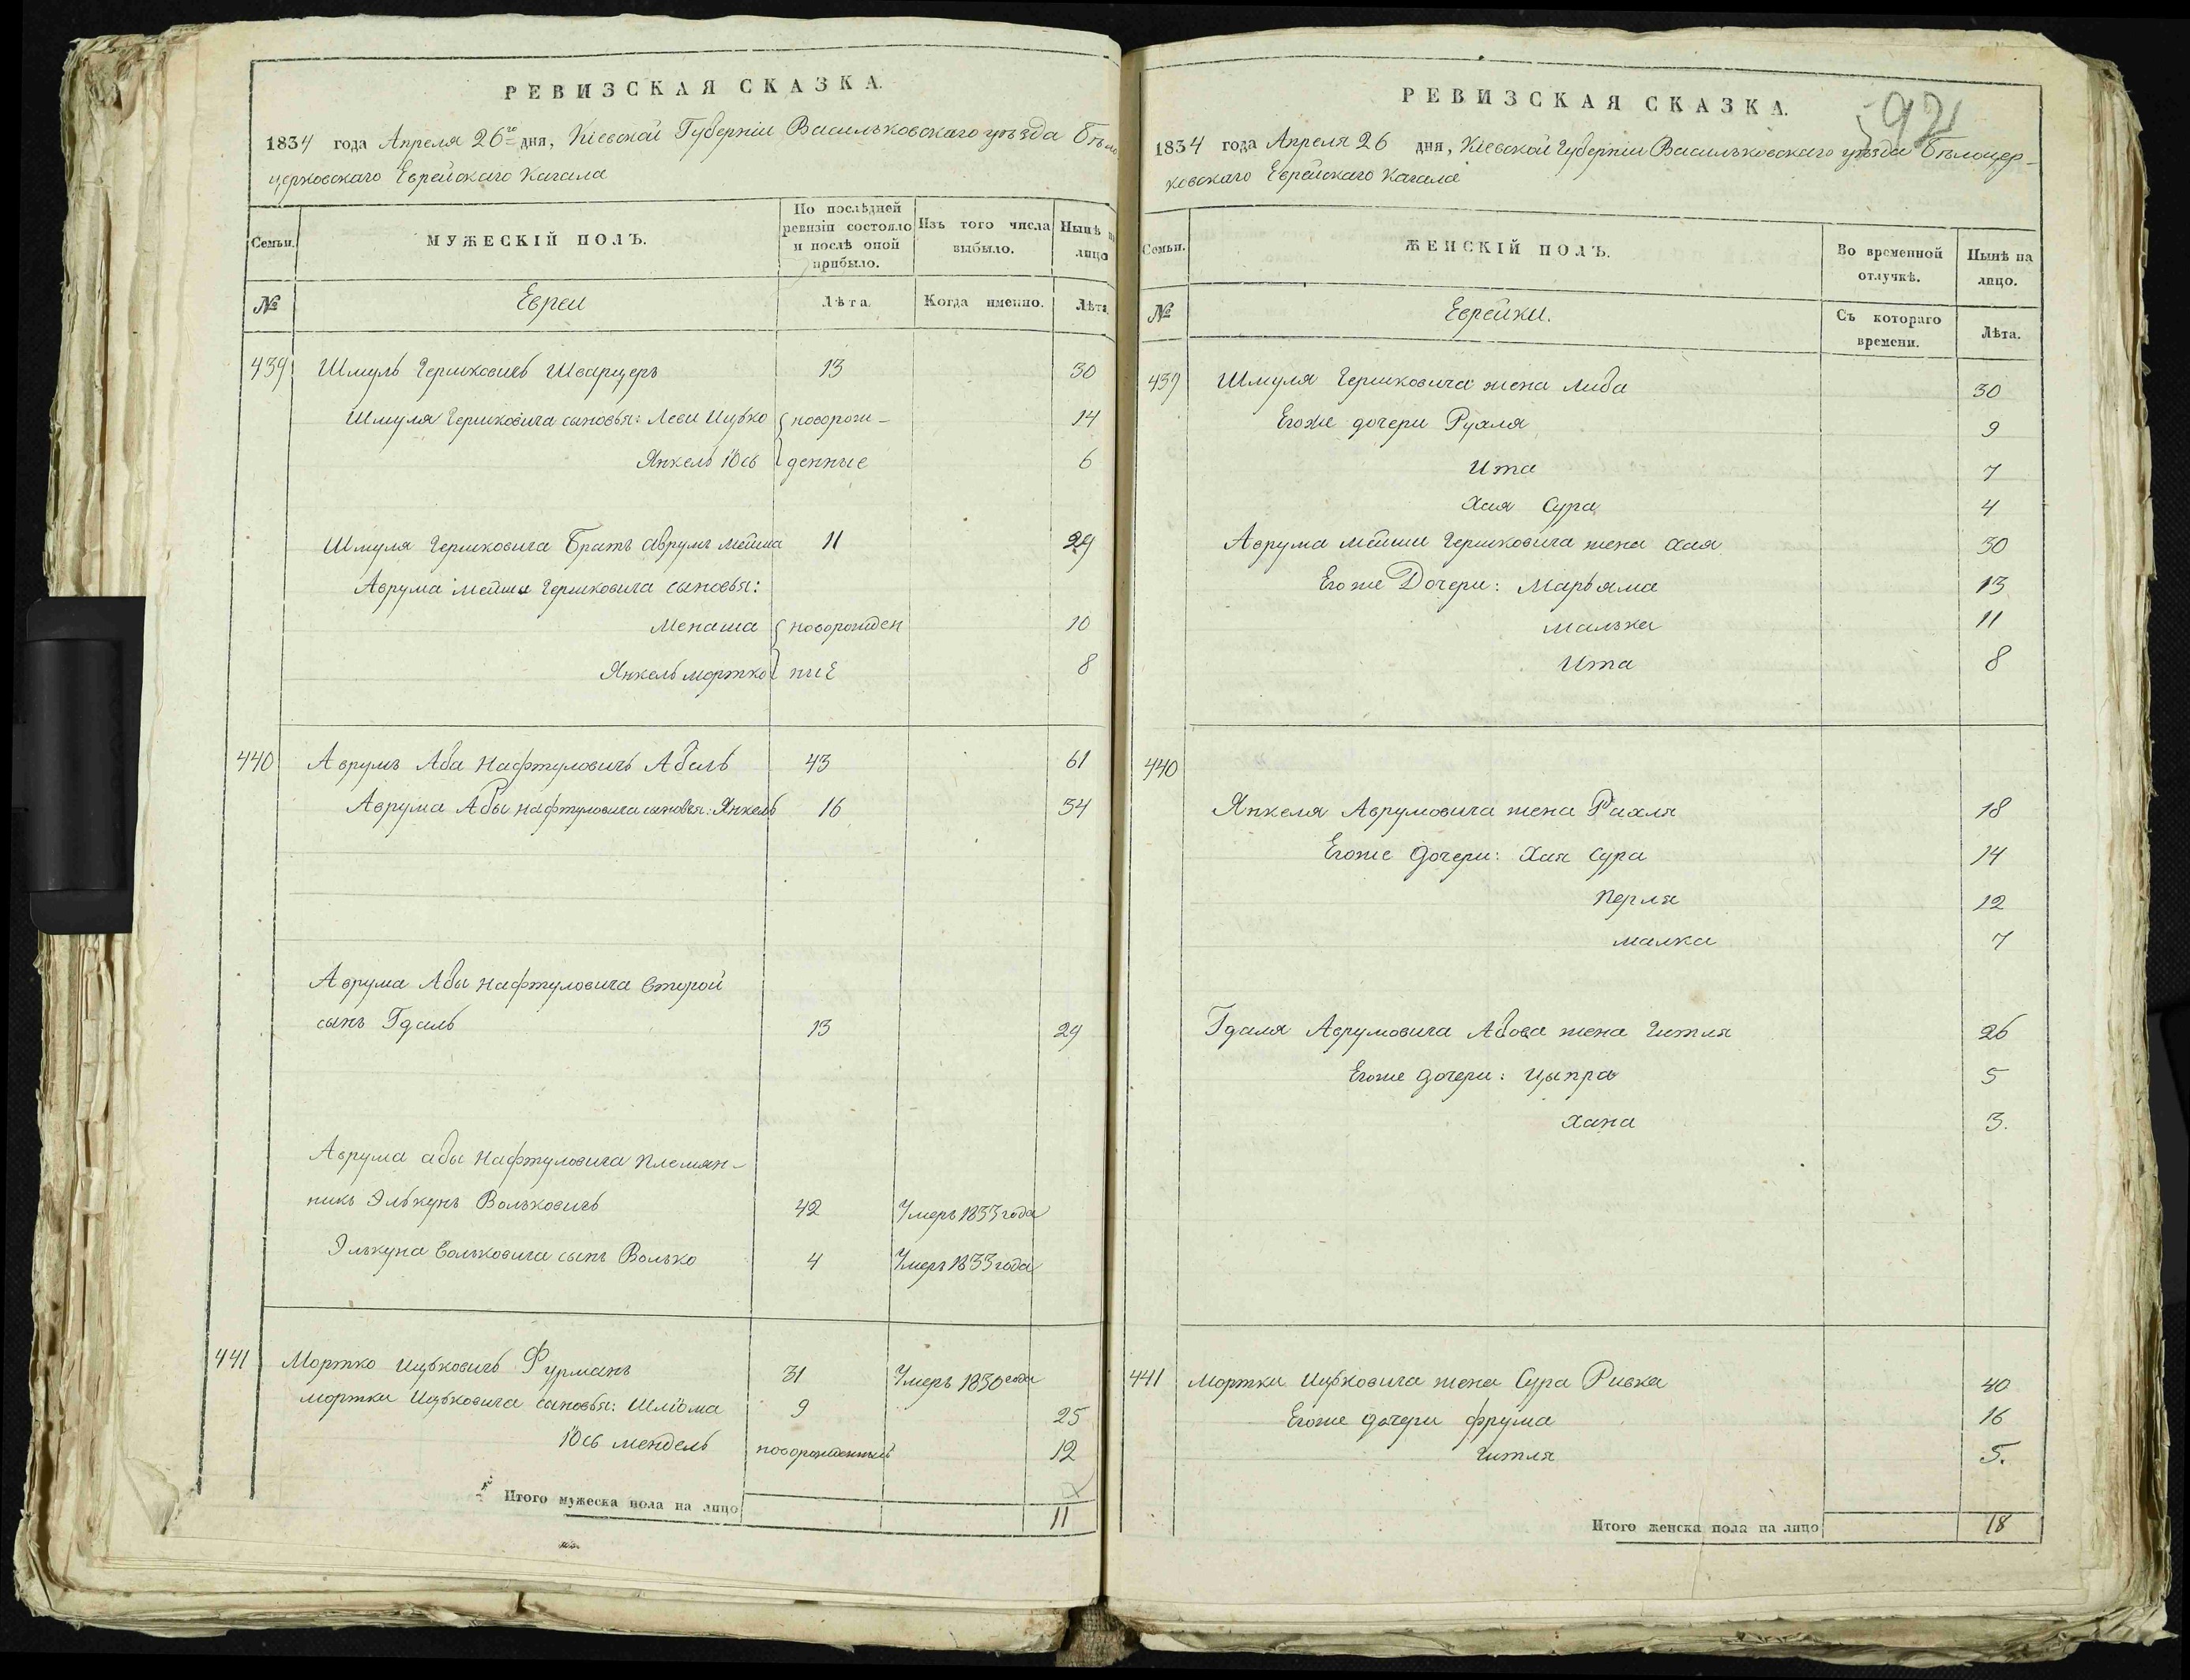 РЕВИЗСКАЯ СКАЗКА.
1834 года Апреля 26го дня, Кіевской Губерніи Васильковскаго уѣзда Бѣло
церковскаго Еврейскаго Кагала
Семьи.
МУЖЕСКІЙ ПОЛЪ.
По послѣдней ревизіи состояло и послѣ оной прибыло.
Изъ того числа выбыло.
Нынѣ на лицо
№
Евреи
Лѣта.
Когда именно.
Лѣта.
439 Шмуль Гершковичъ Шварцеръ 13 30
Шмуля Гершковича сыновья: Леви Ицько новорож- 14
Янкель Iось денные 6
Шмуля Гершковича Братъ Аврумъ Мейша 11 29
Аврума Мейши Гершковича сыновья:
Менаша новорожден 10
Янкель Мортко ные 8
440 Аврумъ Аба Нафтуловичъ Абель 43 61
Аврума Абы Нафтуловича сыновья: Янкель 16 34
Аврума Абы Нафтуловича второй
сынъ Гдаль 13 29
Аврума Абы Нафтуловича племян-
никъ Элькунъ Вольковичъ 42 Умеръ 1833 года
Элькуна Вольковича сынъ Волько 4 Умеръ 1833 года
441 Мортко Ицьковичъ Фурманъ 31 Умеръ 1830 года
Мортки Ицьковича сыновья: Шліома 9 25
Iось Мендель новорожденный 12
Итого мужеска пола на лицо 11
92
РЕВИЗСКАЯ СКАЗКА.
1834 года Апреля 26 дня, Кіевской Губерніи Васильковскаго уѣзда Бѣлоцер-
ковскаго Еврейскаго Кагала
Семьи.
ЖЕНСКІЙ ПОЛЪ.
Во временной отлучкѣ.
Нынѣ на лицо.
№
Еврейки.
Съ котораго времени.
Лѣта.
439 Шмуля Гершковича жена Либа 30
Егоже дочери Рухля 9
Ита 7
Хая Сура 4
Аврума Мейши Гершковича жена Хая 30
Егоже Дочери: Марьяма 13
Малька 11
Ита 8
440
Янкеля Аврумовича жена Рахля 18
Егоже дочери: Хая Сура 14
Перля 12
Малка 7
Гдаля Аврумовича Абова жена Гитля 26
Егоже дочери: Цыпра 5
Хана 3.
441 Мортки Ицьковича жена Сура Ривка 40
Егоже дочери Фрума 16
Гитля 5.
Итого женска пола на лицо 18